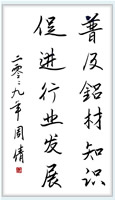 普及鋁材知识
促进行业发展
二零二九年周倩